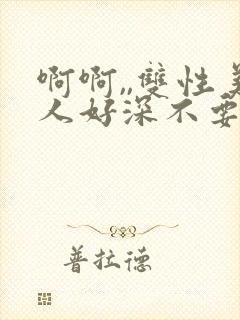 啊啊,,雙性美
人好深不要
普拉德